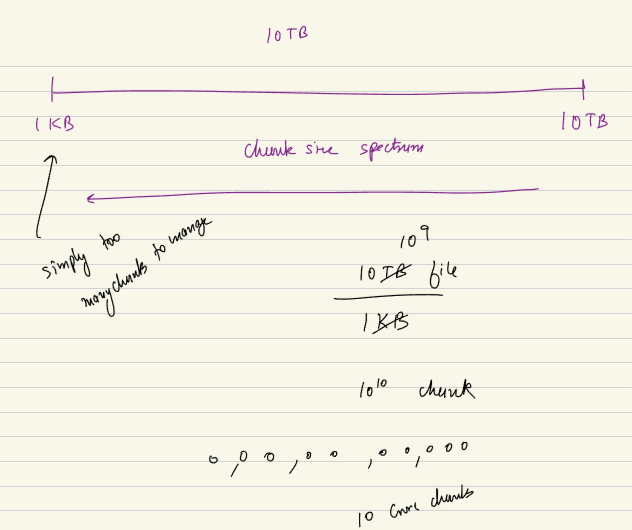 10TB
1 KB
10TB
chunk size spectrum
simply too
many chunks to manage
10⁹
10 TB file
1 KB
10¹⁰ chunk
0,00,00,00,000
10 crore chunks